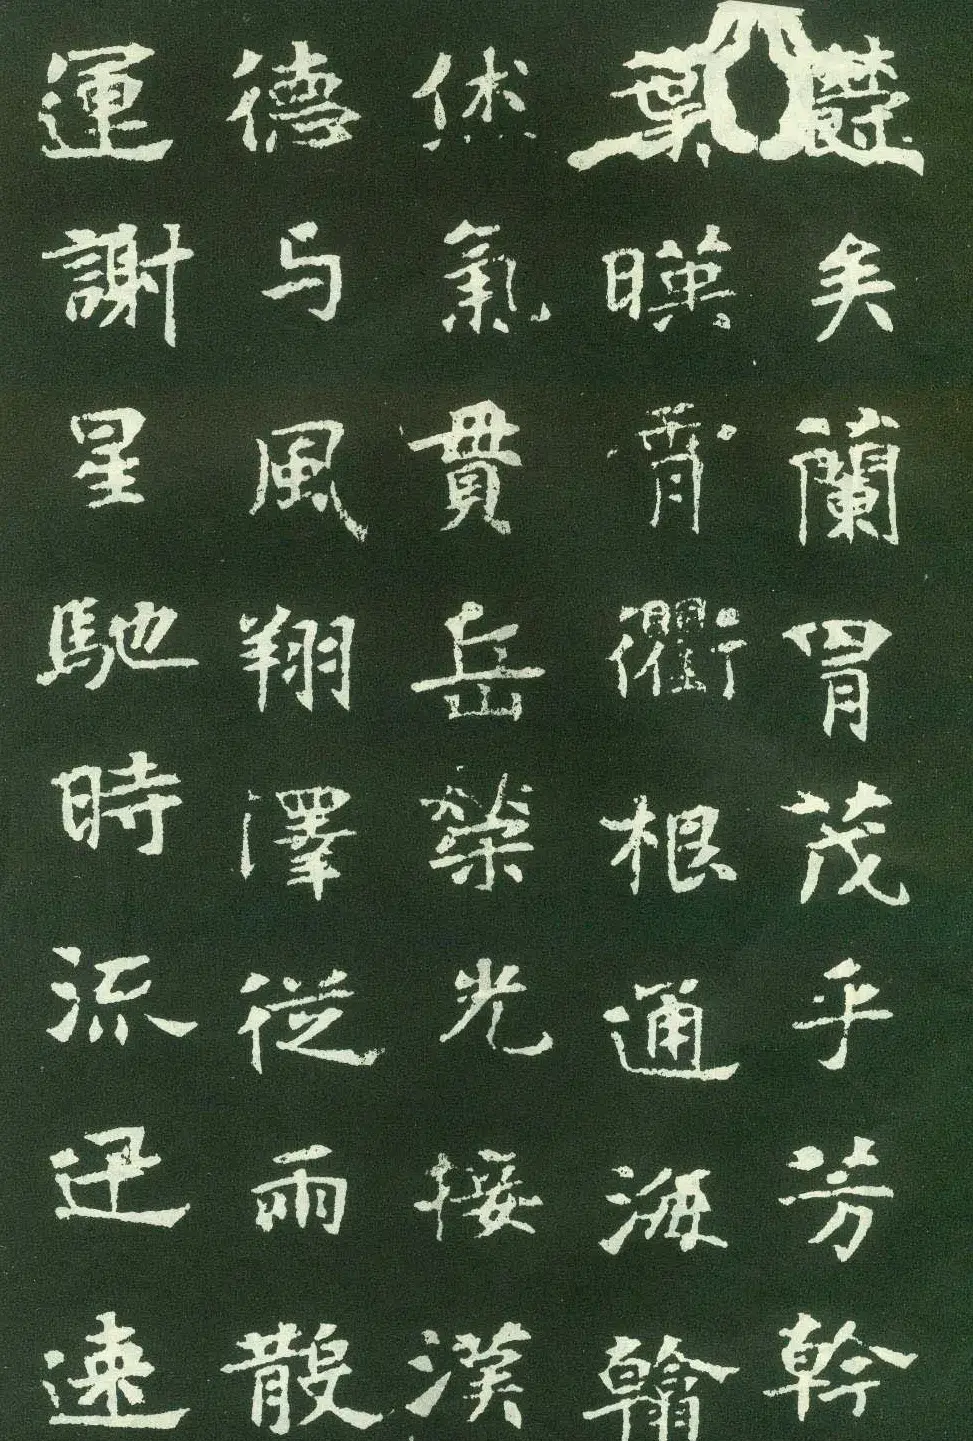 矣蘭胄茂乎芳幹
葉暎霄衢根通海翰
烋氣貫岳榮光接漢
德与風翔澤從雨散
運謝星馳時流迅速